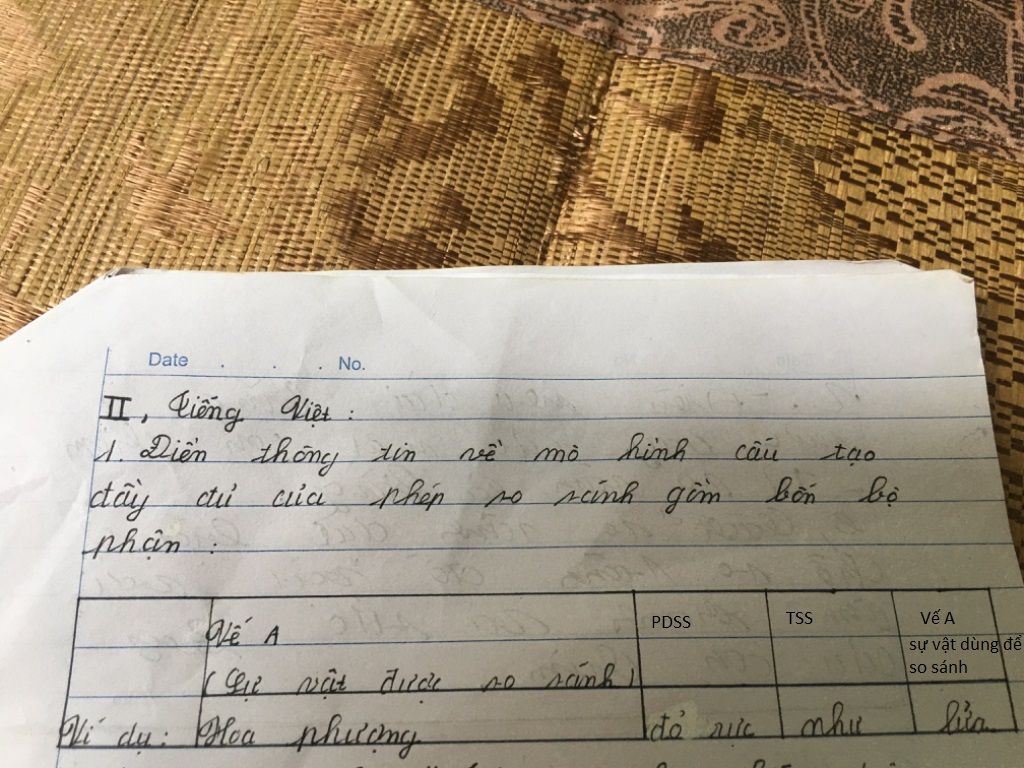 Date . . . No.
II, Tiếng Việt:
1. Điền thông tin về mô hình cấu tạo
đầy đủ của phép so sánh gồm bốn bộ
phận :
Vế A
(Sự vật được so sánh)
PDSS
TSS
Vế A
sự vật dùng để
so sánh
Ví dụ: Hoa phượng đỏ rực như lửa